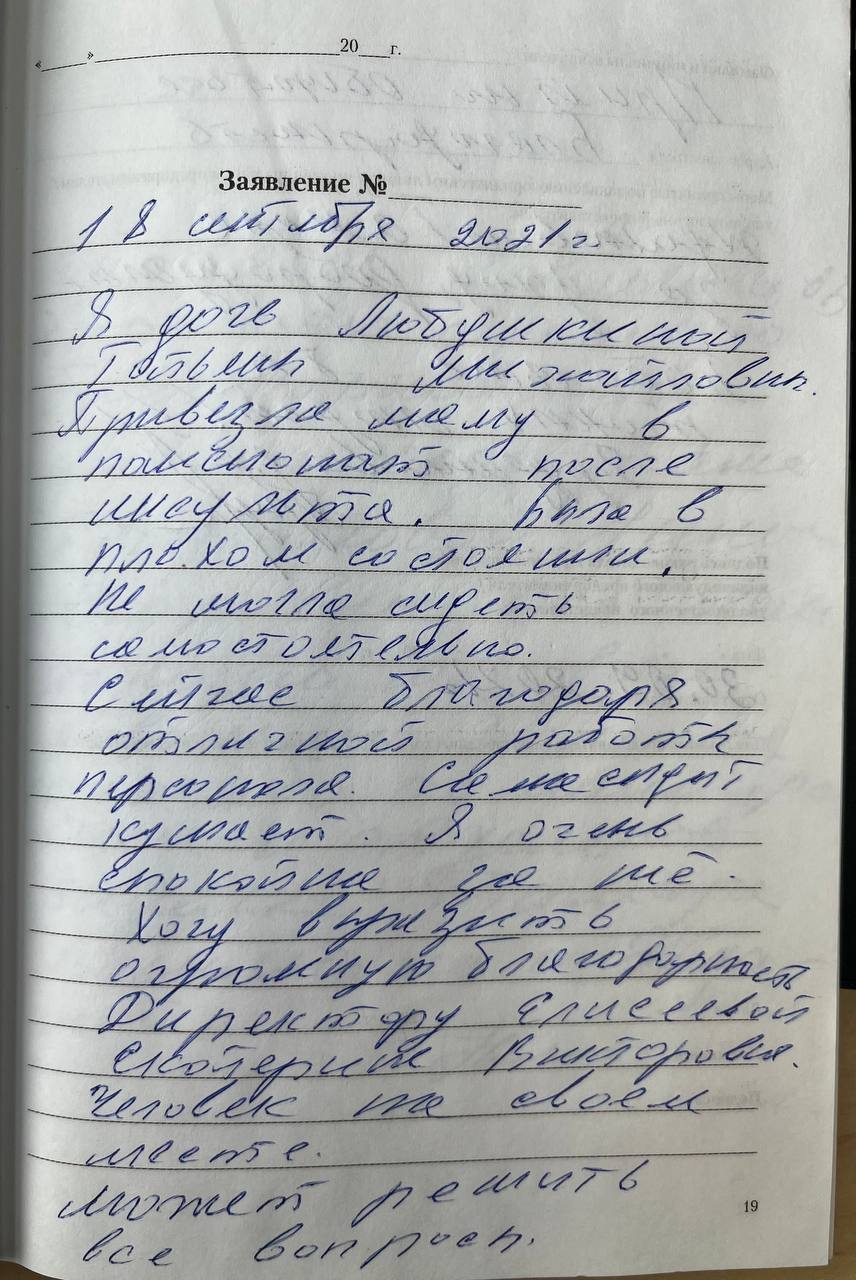 «____» ____________________20___г.
Заявление №______________
18 сентября 2021 г.
Я дочь Любушкиной
Татьяны Михайловны.
Привезла маму в
пансионат после
инсульта. Была в
плохом состоянии.
Не могла сидеть
самостоятельно.
Сейчас благодаря
отличной работы
персонала. Сама сидит
кушает. Я очень
спокойна за неё.
Хочу выразить
огромную благодарность
Директору Елисеевой
Екатерине Викторовне.
Человек на своем
месте.
может решить
все вопросы.
19